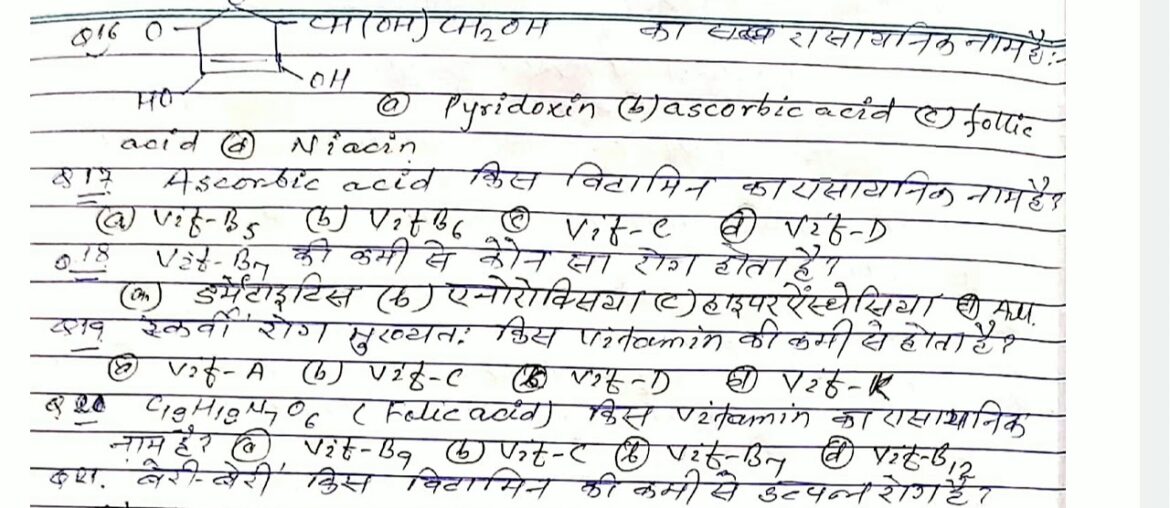 Q16 O CH(OH)CH2OH का रासायनिक नाम है:-
HO OH
(a) Pyridoxin (b) ascorbic acid (c) follic
acid (d) Niacin
Q17 Ascorbic acid किस विटामिन का रासायनिक नाम है?
(a) Vit-B5 (b) Vit B6 (c) Vit-C (d) Vit-D
Q.18 Vit-B7 की कमी से कौन सा रोग होता है?
(a) डर्मेटाइटिस (b) एनोरोक्सिया (c) हाइपर ऐंस्थेसिया (d) All.
Q19 स्कर्वी रोग मुख्यतः किस Vitamin की कमी से होता है?
(a) Vit-A (b) Vit-C (c) Vit-D (d) Vit-K
Q 20 C19H19N7O6 (Folic acid) किस Vitamin का रासायनिक
नाम है? (a) Vit-B9 (b) Vit-C (c) Vit-B7 (d) Vit-B12
Q21. बेरी-बेरी किस विटामिन की कमी से उत्पन्न रोग है?